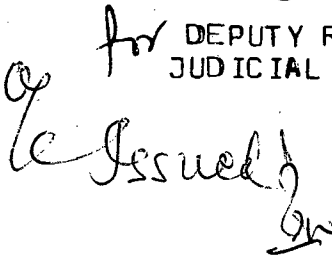 for DEPUTY R
JUDICIAL
Issued